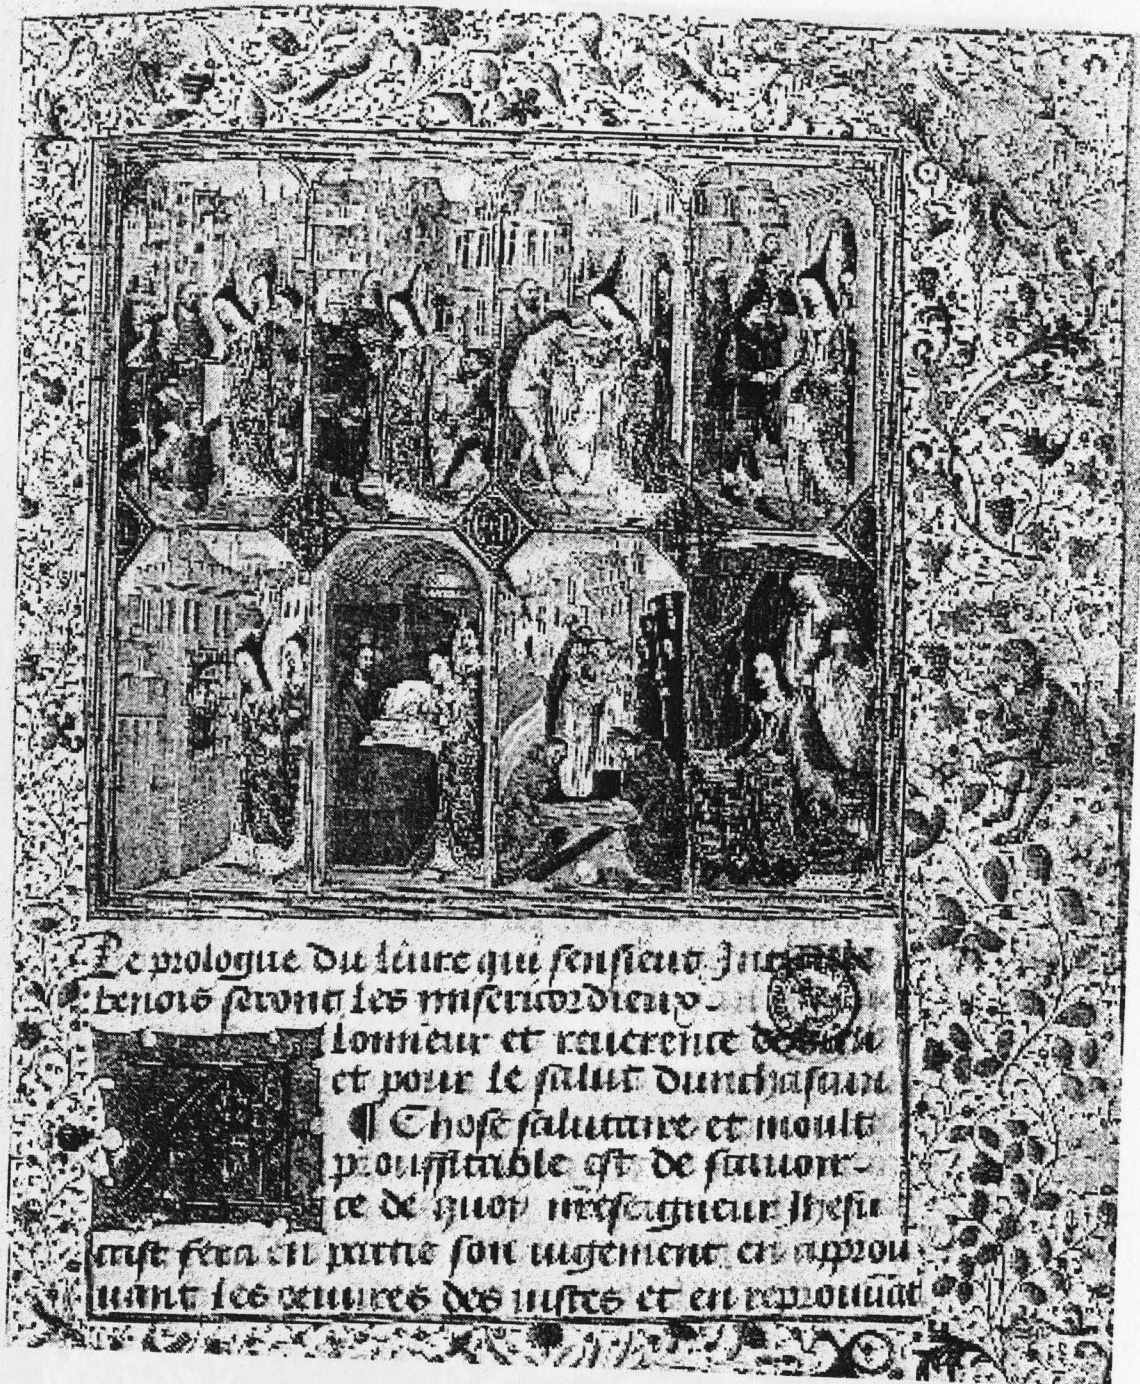 Le prologue du liure qui sensieut
benois seront les misericordieux.
lonneur et reuerence de dieu
et pour le salut dunchascun
¶ Chose salutaire et moult
prouffitable est de sauoir
ce de quoy nr̄eseigneur Jhesu
crist fera en partie son iugement en approu
uant les oeuures des iustes et en reprouuāt